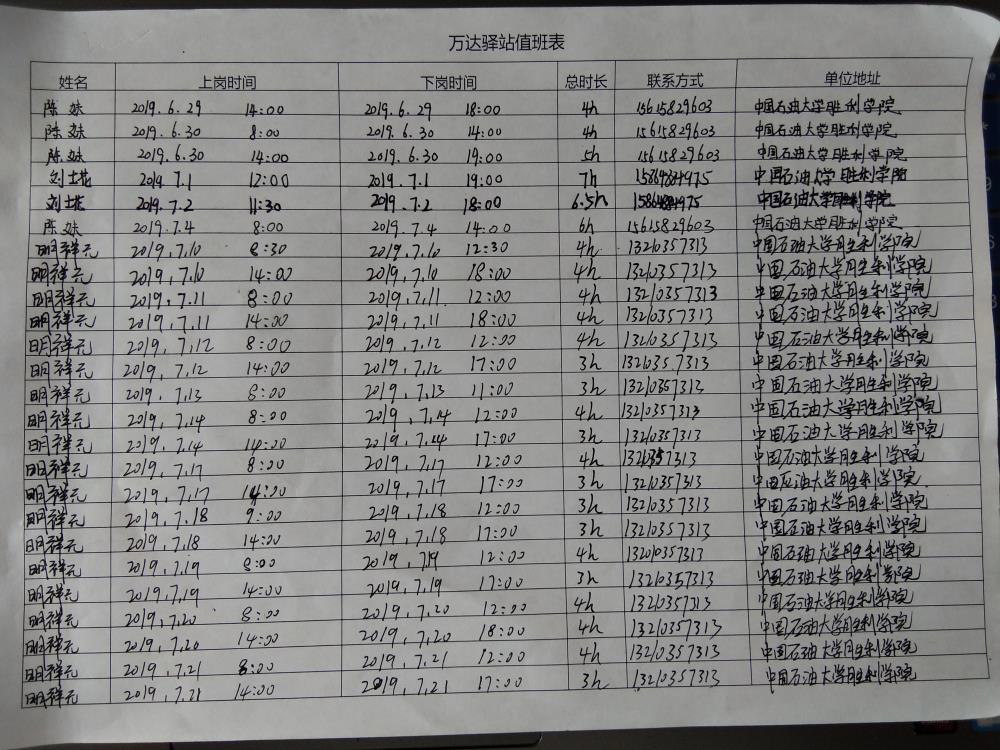 万达驿站值班表
姓名 上岗时间 下岗时间 总时长 联系方式 单位地址
陈妹 2019.6.29 14:00 2019.6.29 18:00 4h 15615829603 中国石油大学胜利学院
陈妹 2019.6.30 8:00 2019.6.30 14:00 4h 15615829603 中国石油大学胜利学院
陈妹 2019.6.30 14:00 2019.6.30 19:00 5h 15615829603 中国石油大学胜利学院
刘士花 2019.7.1 12:00 2019.7.1 19:00 7h 中国石油大学胜利学院
刘士花 2019.7.2 11:30 2019.7.2 18:00 6.5h 中国石油大学胜利学院
陈妹 2019.7.4 8:00 2019.7.4 14:00 6h 15615829603 中国石油大学胜利学院
明祥元 2019,7,10 8:30 2019,7,10 12:30 4h 13210357313 中国石油大学胜利学院
明祥元 2019,7,10 14:00 2019,7,10 18:00 4h 13210357313 中国石油大学胜利学院
明祥元 2019,7,11 8:00 2019,7,11 12:00 4h 13210357313 中国石油大学胜利学院
明祥元 2019,7,11 14:00 2019,7,11 18:00 4h 13210357313 中国石油大学胜利学院
明祥元 2019,7,12 8:00 2019,7,12 12:00 4h 13210357313 中国石油大学胜利学院
明祥元 2019,7,12 14:00 2019,7,12 17:00 3h 13210357313 中国石油大学胜利学院
明祥元 2019,7,13 8:00 2019,7,13 11:00 3h 13210357313 中国石油大学胜利学院
明祥元 2019,7,14 8:00 2019,7,14 12:00 4h 13210357313 中国石油大学胜利学院
明祥元 2019,7,14 14:00 2019,7,14 17:00 3h 13210357313 中国石油大学胜利学院
明祥元 2019,7,17 8:00 2019,7,17 12:00 4h 13210357313 中国石油大学胜利学院
明祥元 2019,7,17 14:00 2019,7,17 17:00 3h 13210357313 中国石油大学胜利学院
明祥元 2019,7,18 9:00 2019,7,18 12:00 3h 13210357313 中国石油大学胜利学院
明祥元 2019,7,18 14:00 2019,7,18 17:00 3h 13210357313 中国石油大学胜利学院
明祥元 2019,7,19 8:00 2019,7,19 12:00 4h 13210357313 中国石油大学胜利学院
明祥元 2019,7,19 14:00 2019,7,19 17:00 3h 13210357313 中国石油大学胜利学院
明祥元 2019,7,20 8:00 2019,7,20 12:00 4h 13210357313 中国石油大学胜利学院
明祥元 2019,7,20 14:00 2019,7,20 18:00 4h 13210357313 中国石油大学胜利学院
明祥元 2019,7,21 8:00 2019,7,21 12:00 4h 13210357313 中国石油大学胜利学院
明祥元 2019,7,21 14:00 2019,7,21 17:00 3h 13210357313 中国石油大学胜利学院